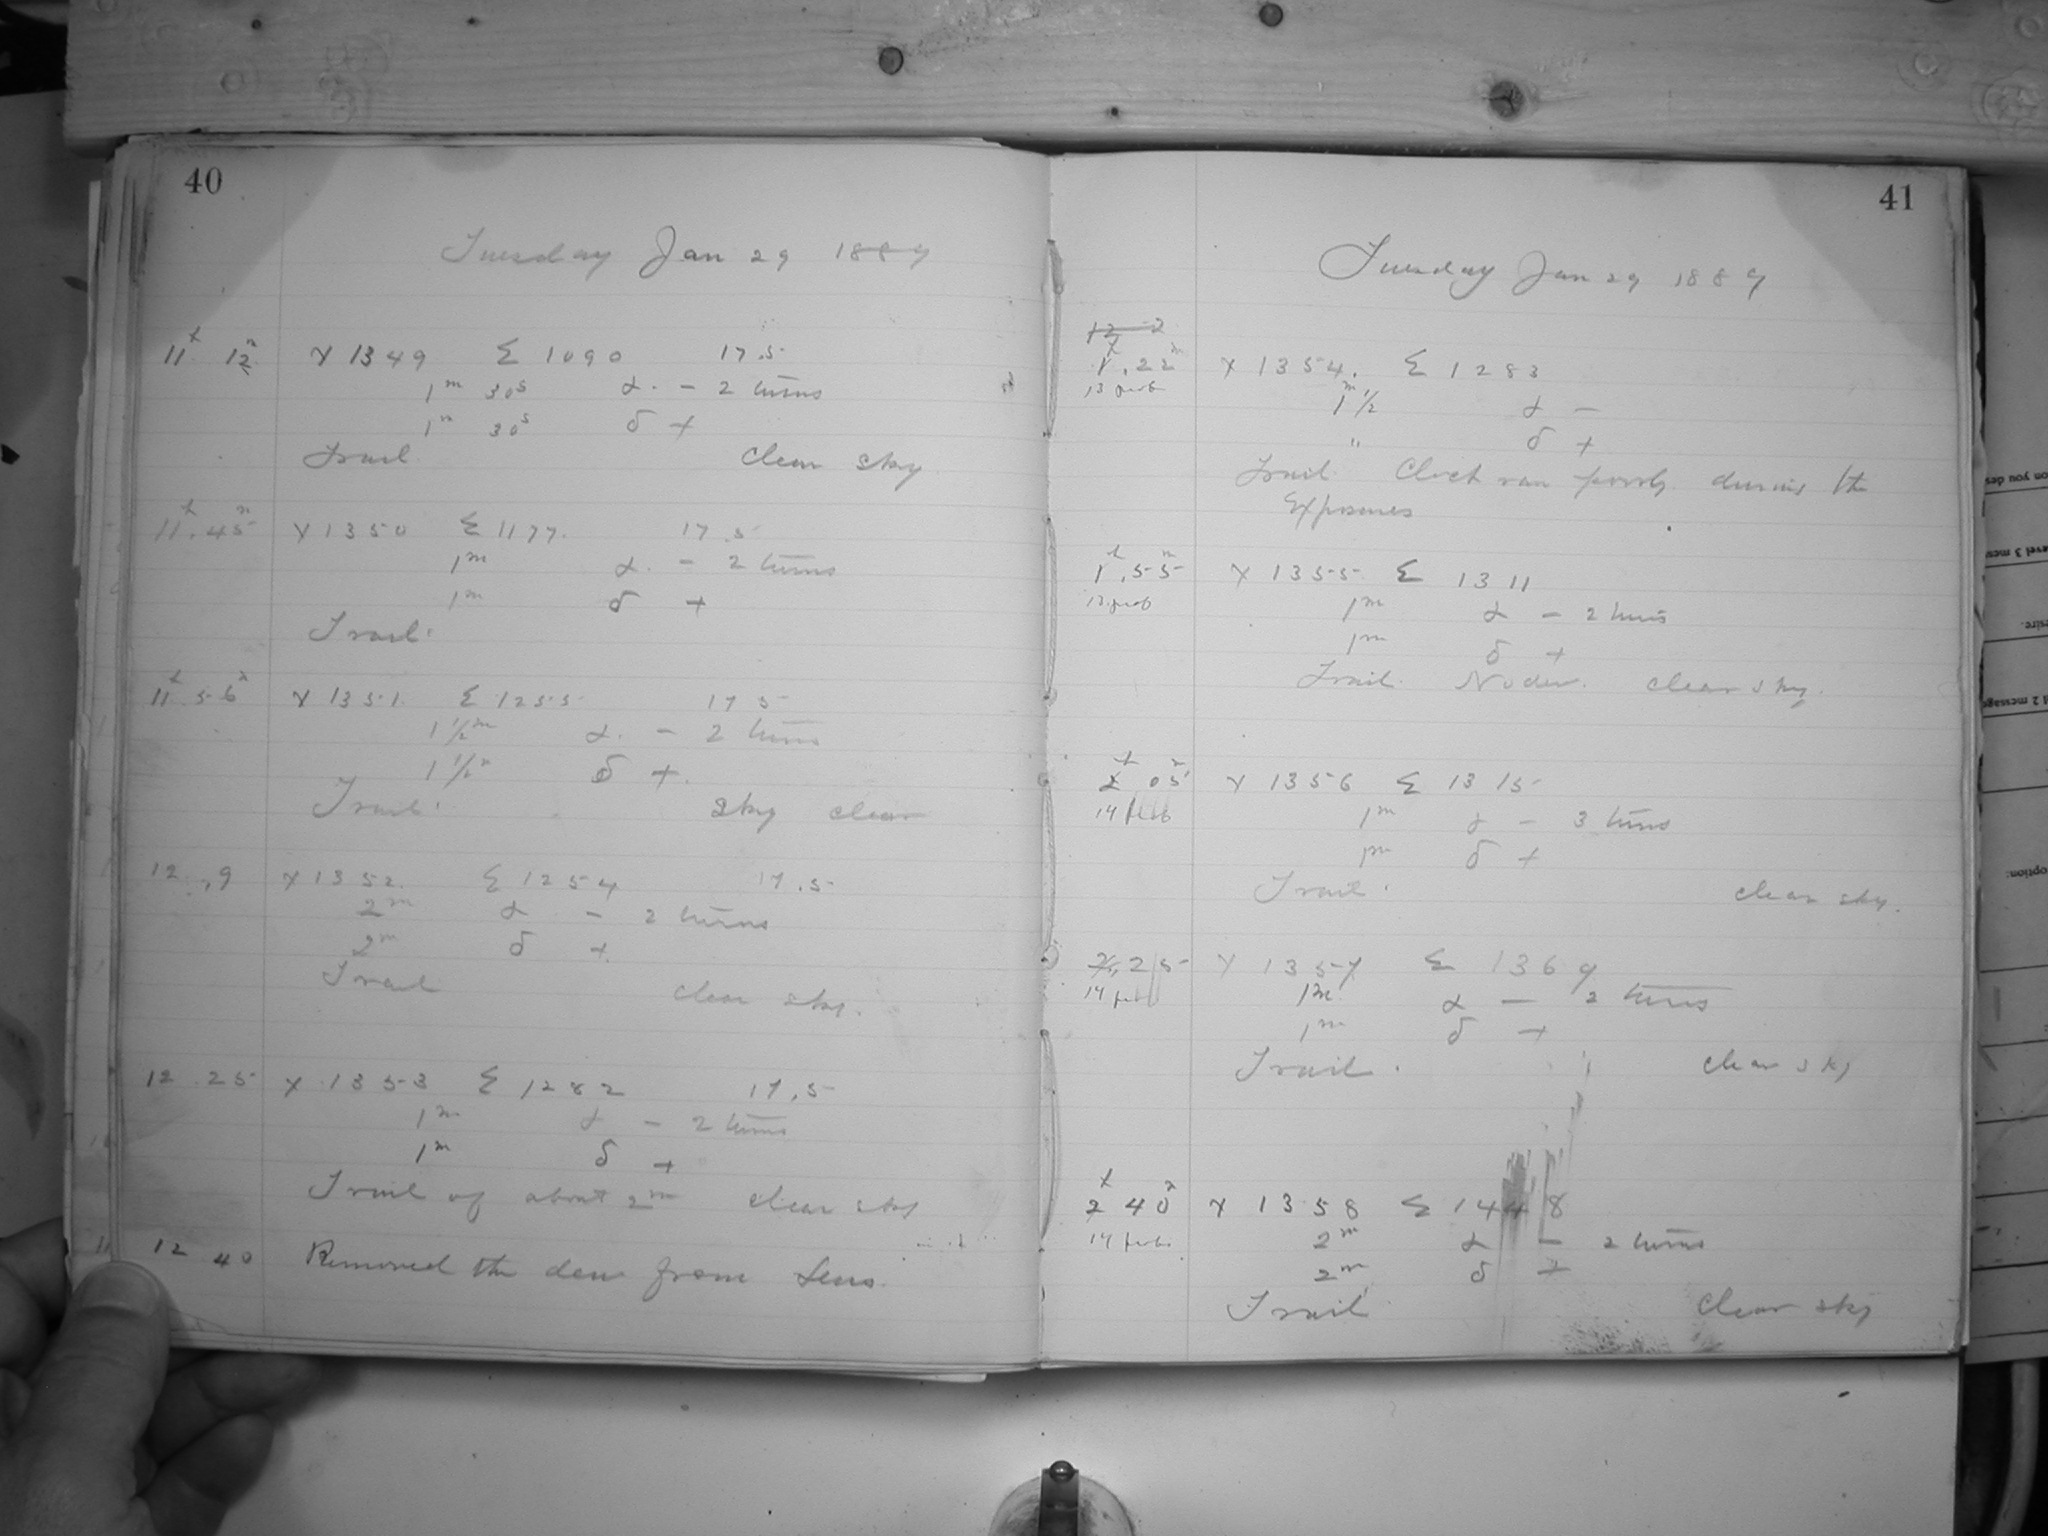 40
Tuesday Jan 29 1889
11h 12m X 1349 Σ 1090 17.5
1m 30s α. - 2 turns
1m 30s δ +
Trail clear sky
11h.45m X 1350 Σ 1177. 17.5
1m α. - 2 turns
1m δ +
Trail.
11h 56m X 1351. Σ 1255 17 5
1 1/2m α. - 2 turns
1 1/2m δ +.
Trail. Sky clear
12.,9 X 1352. Σ 1254 17.5
2m α - 2 turns
2m δ +
Trail clear sky.
12 25 X 1353 Σ 1282 17.5
1m α - 2 turns
1m δ +
Trail of about 2m clear sky
12 40 Removed the dew from Lens.
41
Tuesday Jan 29 1889
12 2
1h.22m X 1354. Σ 1283
13 prob
1m 1/2 α -
" δ +
Trail. Clock ran poorly during the
Exposures
1h.55m X 1355 Σ 1311
13 prob
1m α - 2 turns
1m δ +
Trail. No dew. clear sky.
2h 05m X 1356 Σ 1315
14 prob
1m α - 3 turns
1m δ +
Trail. clear sky.
2.25 X 1357 Σ 1369
14 prob
1m α - 2 turns
1m δ +
Trail. clear sky
2h 40m X 1358 Σ 1448
14 prob.
2m α - 2 turns
2m δ +
Trail clear sky
level 3 mess
esire.
el 2 message
option: